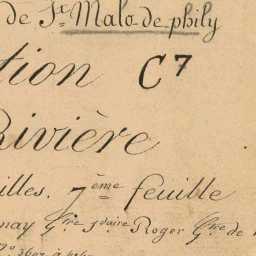 de St Malo-de-phily
tion C7
Rivière
illes. 7ème feuille
nay Gtre Roger Gtre de